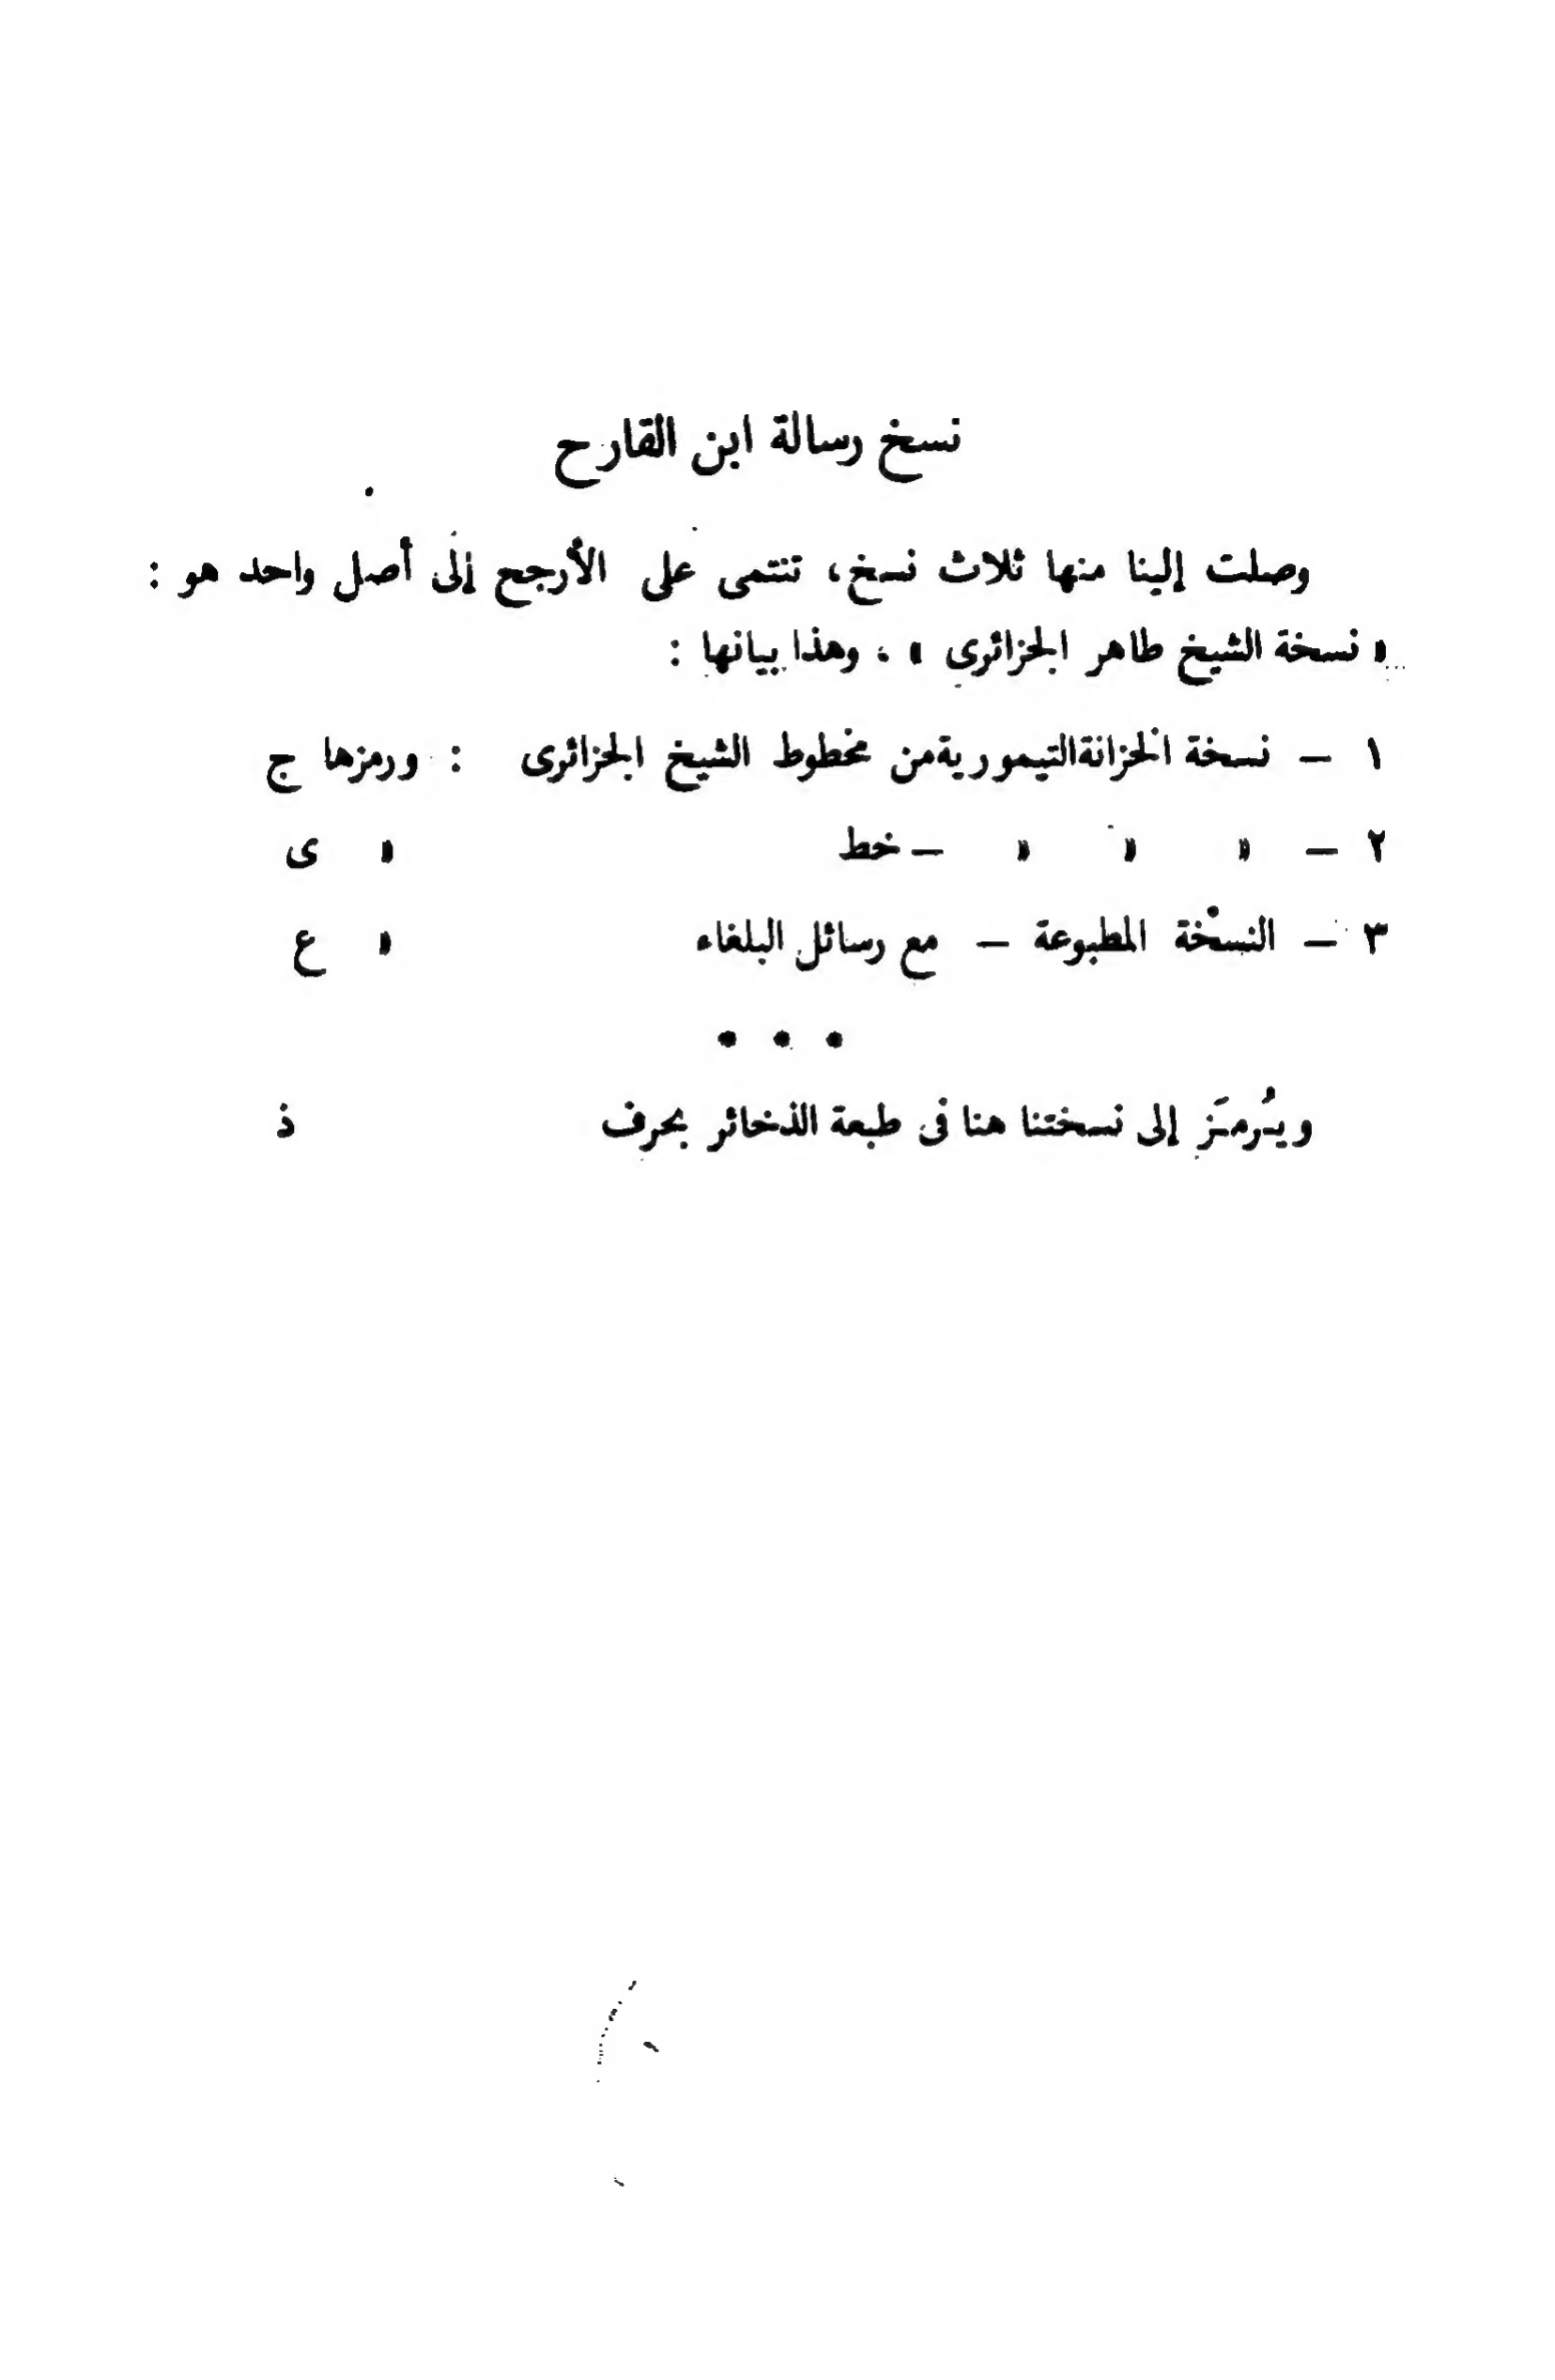 نسخ رسالة ابن القارح
وصلت إلينا منها ثلاث نسخ، تنتمى على الأرجح إلى أصل واحد هو :
« نسخة الشيخ طاهر الجزائرى » ، وهذا بيانها :
١ – نسخة الخزانة التيمورية من مخطوط الشيخ الجزائرى : ورمزها ج
٢ – » » » – خط » ى
٣ – النسخة المطبوعة – مع رسائل البلغاء » ع
• • •
ويُرمَز إلى نسختنا هنا فى طبعة الذخائر بحرف ذ